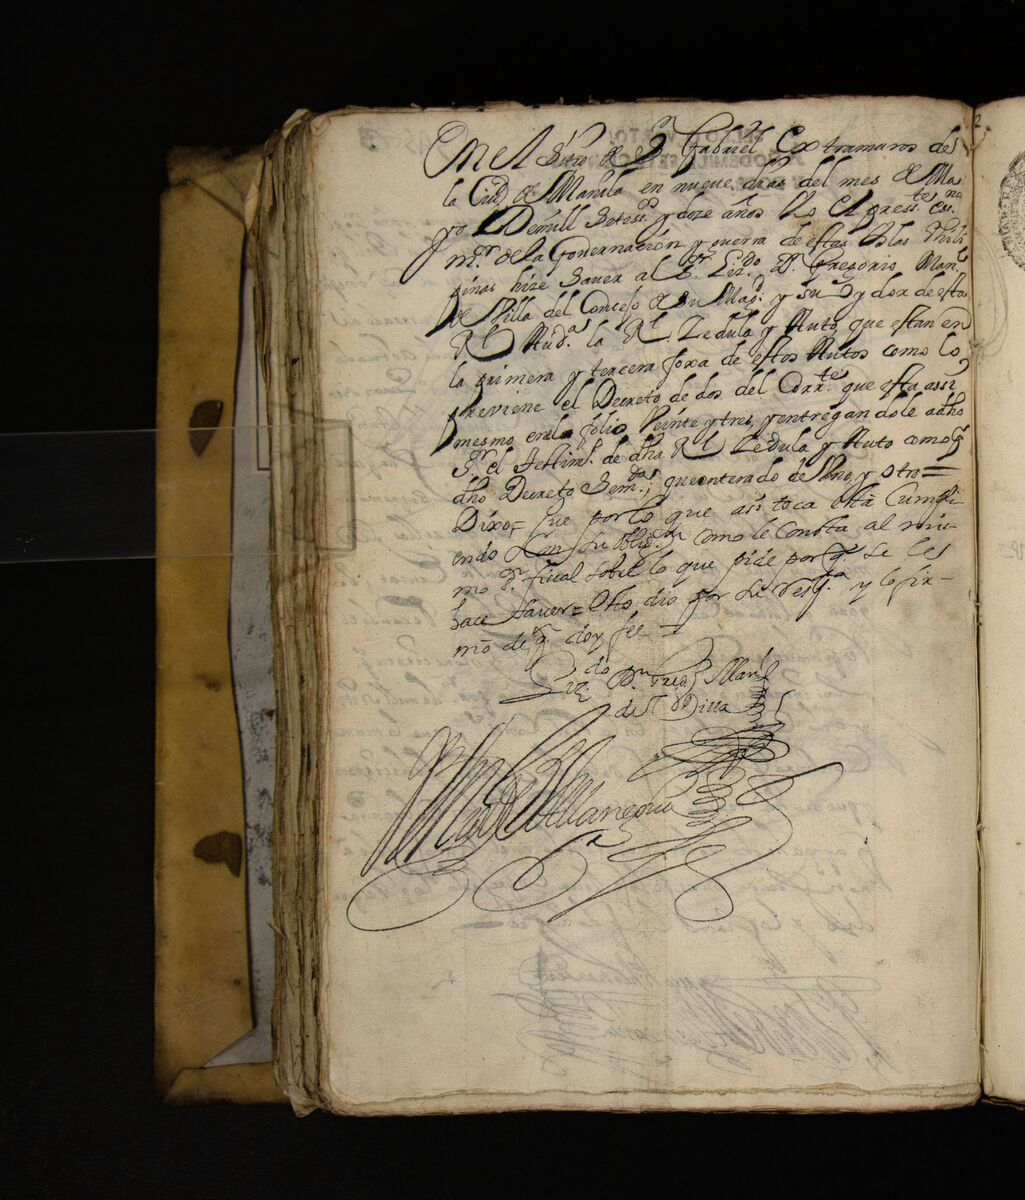 En el Sitio de Sn Gabriel Extramuros de
la Ciud de Manila en nueve dias del mes de Ma
yo Demill Setessos y doze años Yo el press.te es.no
m.r de la Governacion y guerra de estas Islas Phili
pinas hize Saver al Sr Lizdo Dn Gregorio Man.l
de Villa del Concejo de Su Magd. y su oydor de esta
Rl Auda la Rl Zedula y Auto, que estan en
la primera y tercera foxa de estos Autos como lo
previene el Decreto de dos del Corr.te que esta assi
mesmo en la folio Veinte y tres, y entregandole adho
Sr el testim.o de dha Rl Zedula y Auto como
dho Decreto que enterado de Uno, y otro =
Dixo = Que por lo que asi toca esta Cumpli
endo Con su oblig.on como le Consta al mis
mo Sr fiscal sobre lo que pide por q se les
haze saver = Esto dio por Su resp.ta y lo fir
mo de q doy fee =
Lizdo Dn Greg.o Man.l
de Villa